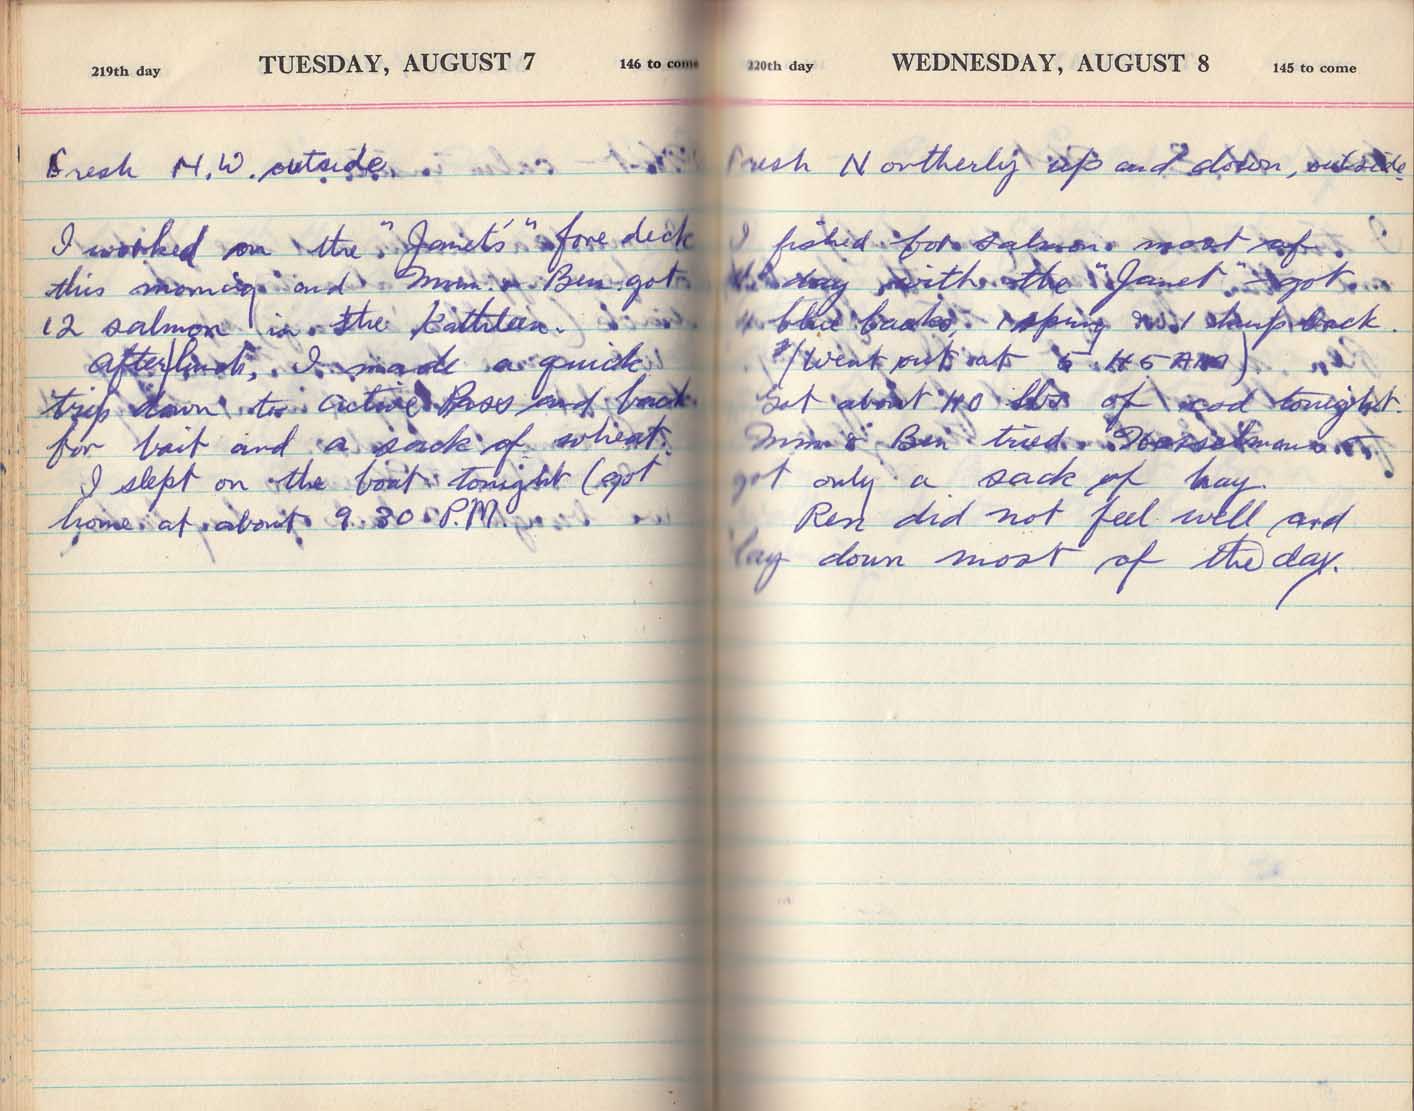 219th day TUESDAY, AUGUST 7 146 to come
Fresh N.W. outside
I worked on the "Janet's" fore deck
this morning and Mum & Ben got
12 salmon in the Kathleen.
After lunch, I made a quick
trip down to Active Pass and back
for bait and a sack of wheat.
I slept on the boat tonight (got
home at about 9.30 P.M.
220th day WEDNESDAY, AUGUST 8 145 to come
Fresh Northerly up and down, outside
I fished for salmon most of
the day with the "Janet" - got
4 blue backs, 1 spring & 1 hump back.
(Went out at 5 45 AM)
Got about 40 lbs of cod tonight.
Mum & Ben tried
got only a sack of hay.
Ben did not feel well and
lay down most of the day.